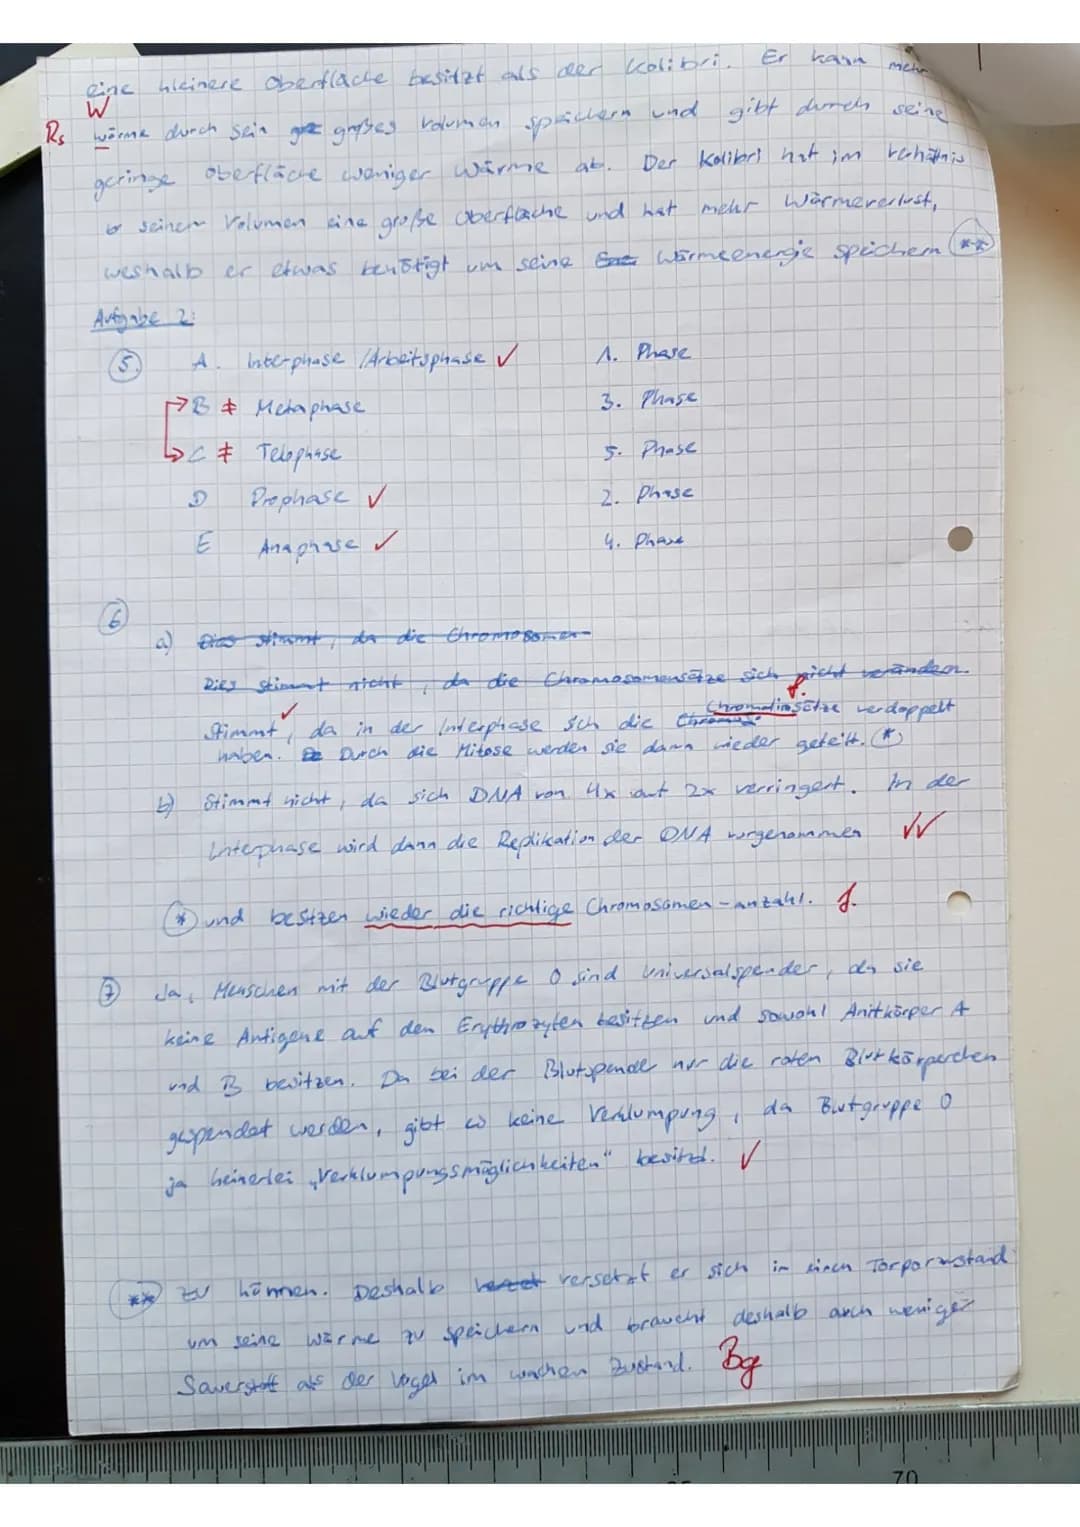 eine kleinere Oberfläche besitzt als der Kolibri. Er kann mehr
W
Rs wärme durch sein großes Volumen speichern und gibt durch seine
geringe Oberfläche weniger Wärme ab. Der Kolibri hat im Verhältnis
seinem Volumen eine große Oberfläche und hat mehr Wärmeverlust,
weshalb er etwas benötigt um seine Wärmeenergie speichern **
Aufgabe 2:
5. A. Interphase /Arbeitsphase ✓ 1. Phase
B ≠ Metaphase 3. Phase
C ≠ Telophase 5. Phase
D Prophase ✓ 2. Phase
E Anaphase ✓ 4. Phase
6
a) Dies stimmt, da die Chromosomen
Dies stimmt nicht, da die Chromosomensätze sich nicht verändern.
Stimmt ✓, da in der Interphase sich die Chromatinsätze verdoppelt f.
haben. Durch die Mitose werden sie dann wieder geteilt. *
b) Stimmt nicht, da sich DNA von 4x auf 2x verringert. In der
Interphase wird dann die Replikation der DNA vorgenommen ✓✓
* und besitzen wieder die richtige Chromosomen-anzahl. f.
7 Ja, Menschen mit der Blutgruppe 0 sind Universalspender, da sie
keine Antigene auf den Erythrozyten besitzen und sowohl Anitkörper A
und B besitzen. Da bei der Blutspende nur die roten Blutkörperchen
gespendet werden, gibt es keine Verklumpung, da Blutgruppe 0
ja keinerlei „Verklumpungsmöglichkeiten" besitzt. ✓
** zu können. Deshalb versetzt er sich in einen Torporzustand
um seine wärme zu speichern und braucht deshalb auch weniger
Sauerstoff als der Vogel im wachen Zustand. Bg
70